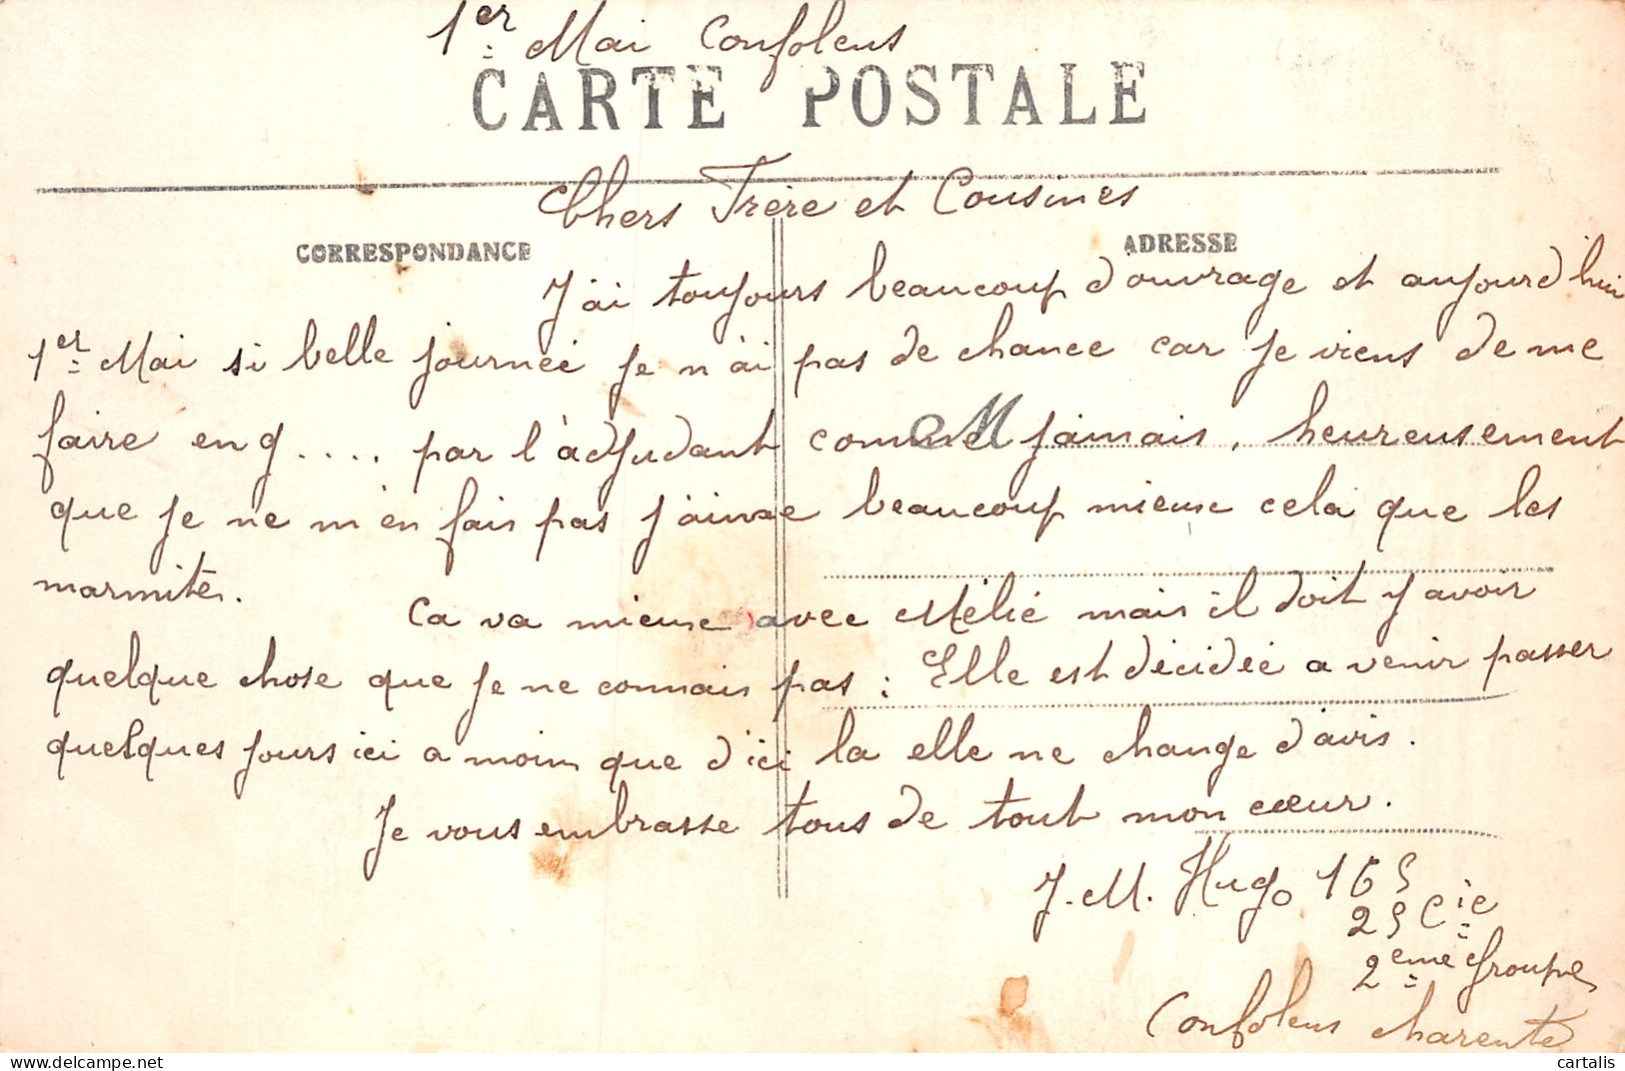 1er Mai Confolens
CARTE POSTALE
Chers Frère et Cousines
CORRESPONDANCE
ADRESSE
J'ai toujours beaucoup d'ouvrage et aujourd'hui
1er Mai si belle journée je n'ai pas de chance car je viens de me
faire en g.... par l'adjudant comme jamais, heureusement
que je ne m'en fais pas j'aime beaucoup mieux cela que les
marmites.
Ca va mieux avec Mélié mais il doit y avoir
quelque chose que je ne connais pas : Elle est décidée a venir passer
quelques jours ici a moins que d'ici la elle ne change d'avis.
Je vous embrasse tous de tout mon cœur.
J. M. Hugo 16S
2S Cie
2eme Groupe
Confolens Charente
cartalis